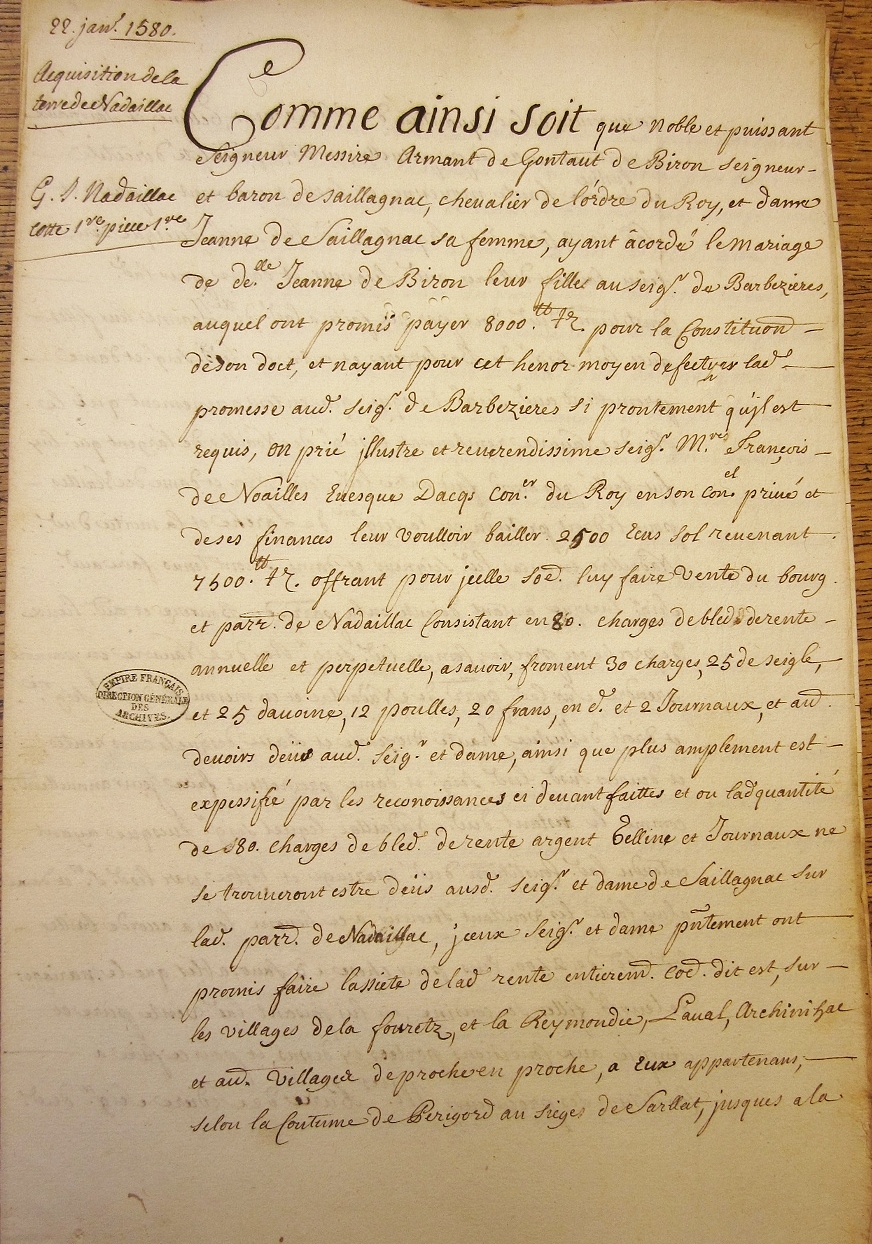 22. janr. 1580.
Acquisition de la
terre de Nadaillac
G. I. Nadaillac
cotte 1re. piece 1re
Comme ainsi soit que Noble et puissant
Seigneur Messire Armant de Gontaut de Biron seigneur
et baron de saillagnac, chevalier de lordre du Roy, et dame
Jeanne de Saillagnac sa femme, ayant acordé le Mariage
de delle. Jeanne de Biron leur filles au seigr. de Barbezieres,
auquel ont promis payer 8000.tt pour la Constituon
de son doct, et nayant pour cet henor moyen defectuer lad.
promesse aud. seigr. de Barbezieres si prontement qu'jl est
requis, on prié jllustre et reverendissime seigr. Mre. François
de Noailles Evesque Dacqs Coner. du Roy en son Conel privé et
de ses finances leur voulloir bailler 2500 Ecus sol revenant
7500.tt offrant pour jcelle soe. luy faire Vente du bourg
et parr. de Nadaillac Consistant en 80. charges de bled de rente
annuelle et perpetuelle, asavoir, froment 30 charges, 25 de seigle,
et 25 davoine, 12 poulles, 20 frans, en d. et 2 Journaux, et au.
devoirs deüs aud. Seigr. et dame, ainsi que plus amplement est
expessifié par les reconoissances ci devant faittes et ou lad quantité
de 80. charges de bled. de rente argent Gelline et Journaux ne
se trouveront estre deüs ausd. seigr. et dame de Saillagnac sur
lad. parr. de Nadaillac, jceux Seigr. et dame pntement ont
promis faire lassiete de lad rente entierem. coe. dit est, sur
les villages de la fouretz, et la Reymondie, Laval, Archinihac
et au. villages de proche en proche, a Eux appartenans,
selon la Coutume de Perigord au sieges de Sarlat, jusques a la
EMPIRE FRANÇAIS
DIRECTION GÉNÉRALE
DES
ARCHIVES.